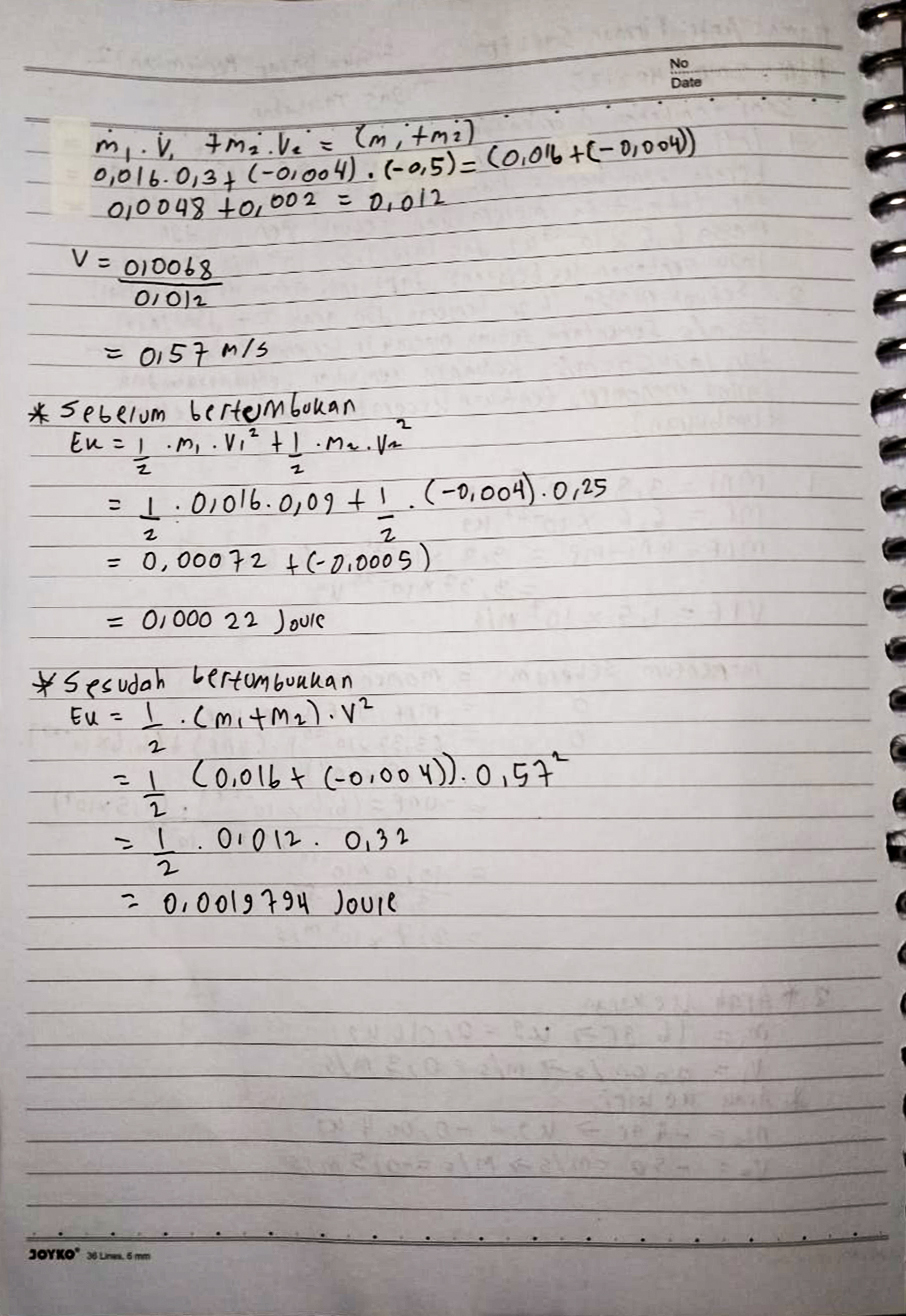 No
Date
m₁ . V₁ + m₂ . V₂ = (m₁ + m₂)
0,016 . 0,3 + (-0,004) . (-0,5) = (0,016 + (-0,004))
0,0048 + 0,002 = 0,012
V = 0,0068
0,012
= 0,57 m/s
* Sebelum bertumbukan
Ek = 1/2 . m₁ . V₁² + 1/2 . m₂ . V₂²
= 1/2 . 0,016 . 0,09 + 1/2 . (-0,004) . 0,25
= 0,00072 + (-0,0005)
= 0,00022 Joule
* Sesudah bertumbukkan
Ek = 1/2 . (m₁ + m₂) . V²
= 1/2 (0,016 + (-0,004)) . 0,57²
= 1/2 . 0,012 . 0,32
= 0,0019794 Joule
JOYKO® 36 Lines, 6 mm